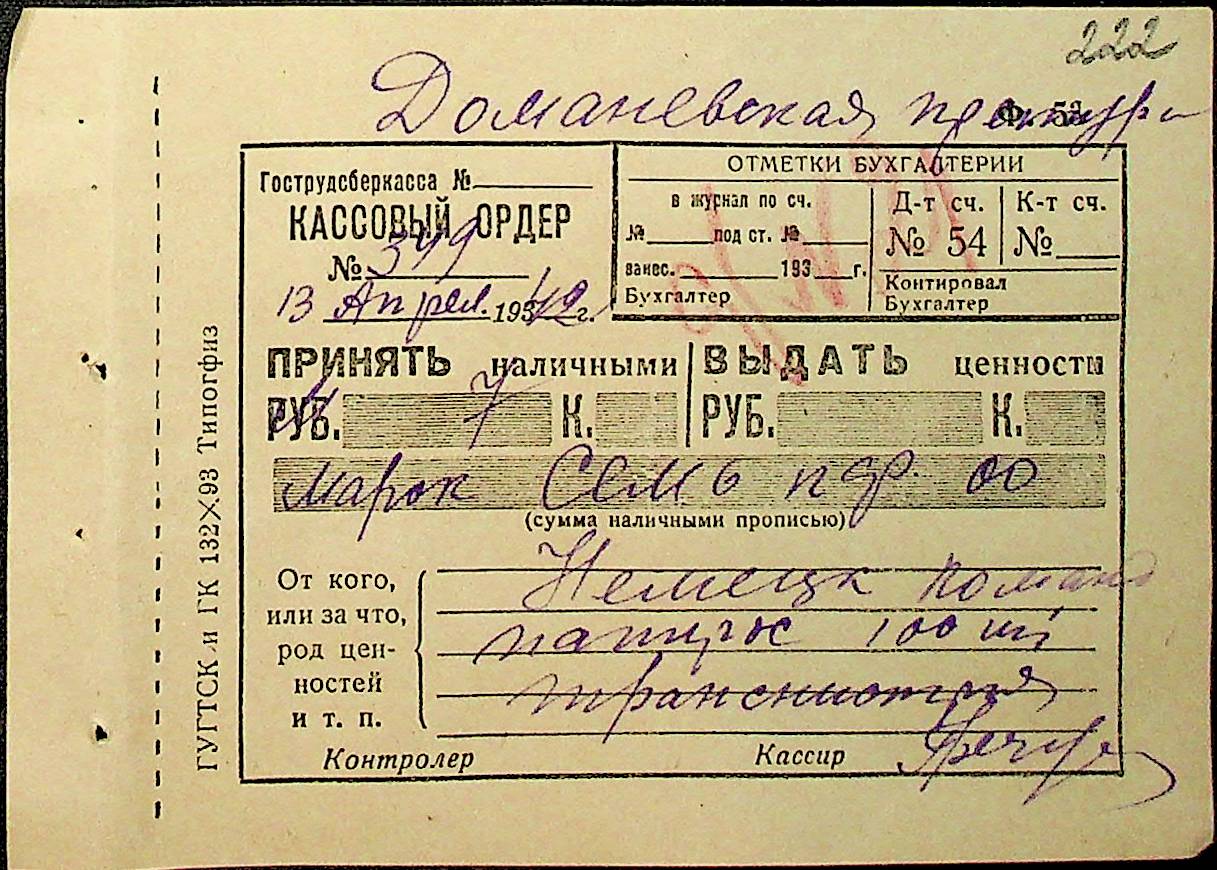 222
Доманевская
Ф. 53
Гострудсберкасса №
КАССОВЫЙ ОРДЕР
№ 349
13 Апрел. 1942 г.
ОТМЕТКИ БУХГАЛТЕРИИ
в журнал по сч.
№ под ст. №
занес. 193 г.
Бухгалтер
Д-т сч.
№ 54
К-т сч.
№
Контировал
Бухгалтер
ПРИНЯТЬ наличными
РУБ. 7 К.
ВЫДАТЬ ценности
РУБ. К.
марок Семь пф. 00
(сумма наличными прописью)
От кого,
или за что,
род цен-
ностей
и т. п.
Немецк команд
папирос 100 шт
Контролер
Кассир
ГУГТСК и ГК 132×93 Типогфиз